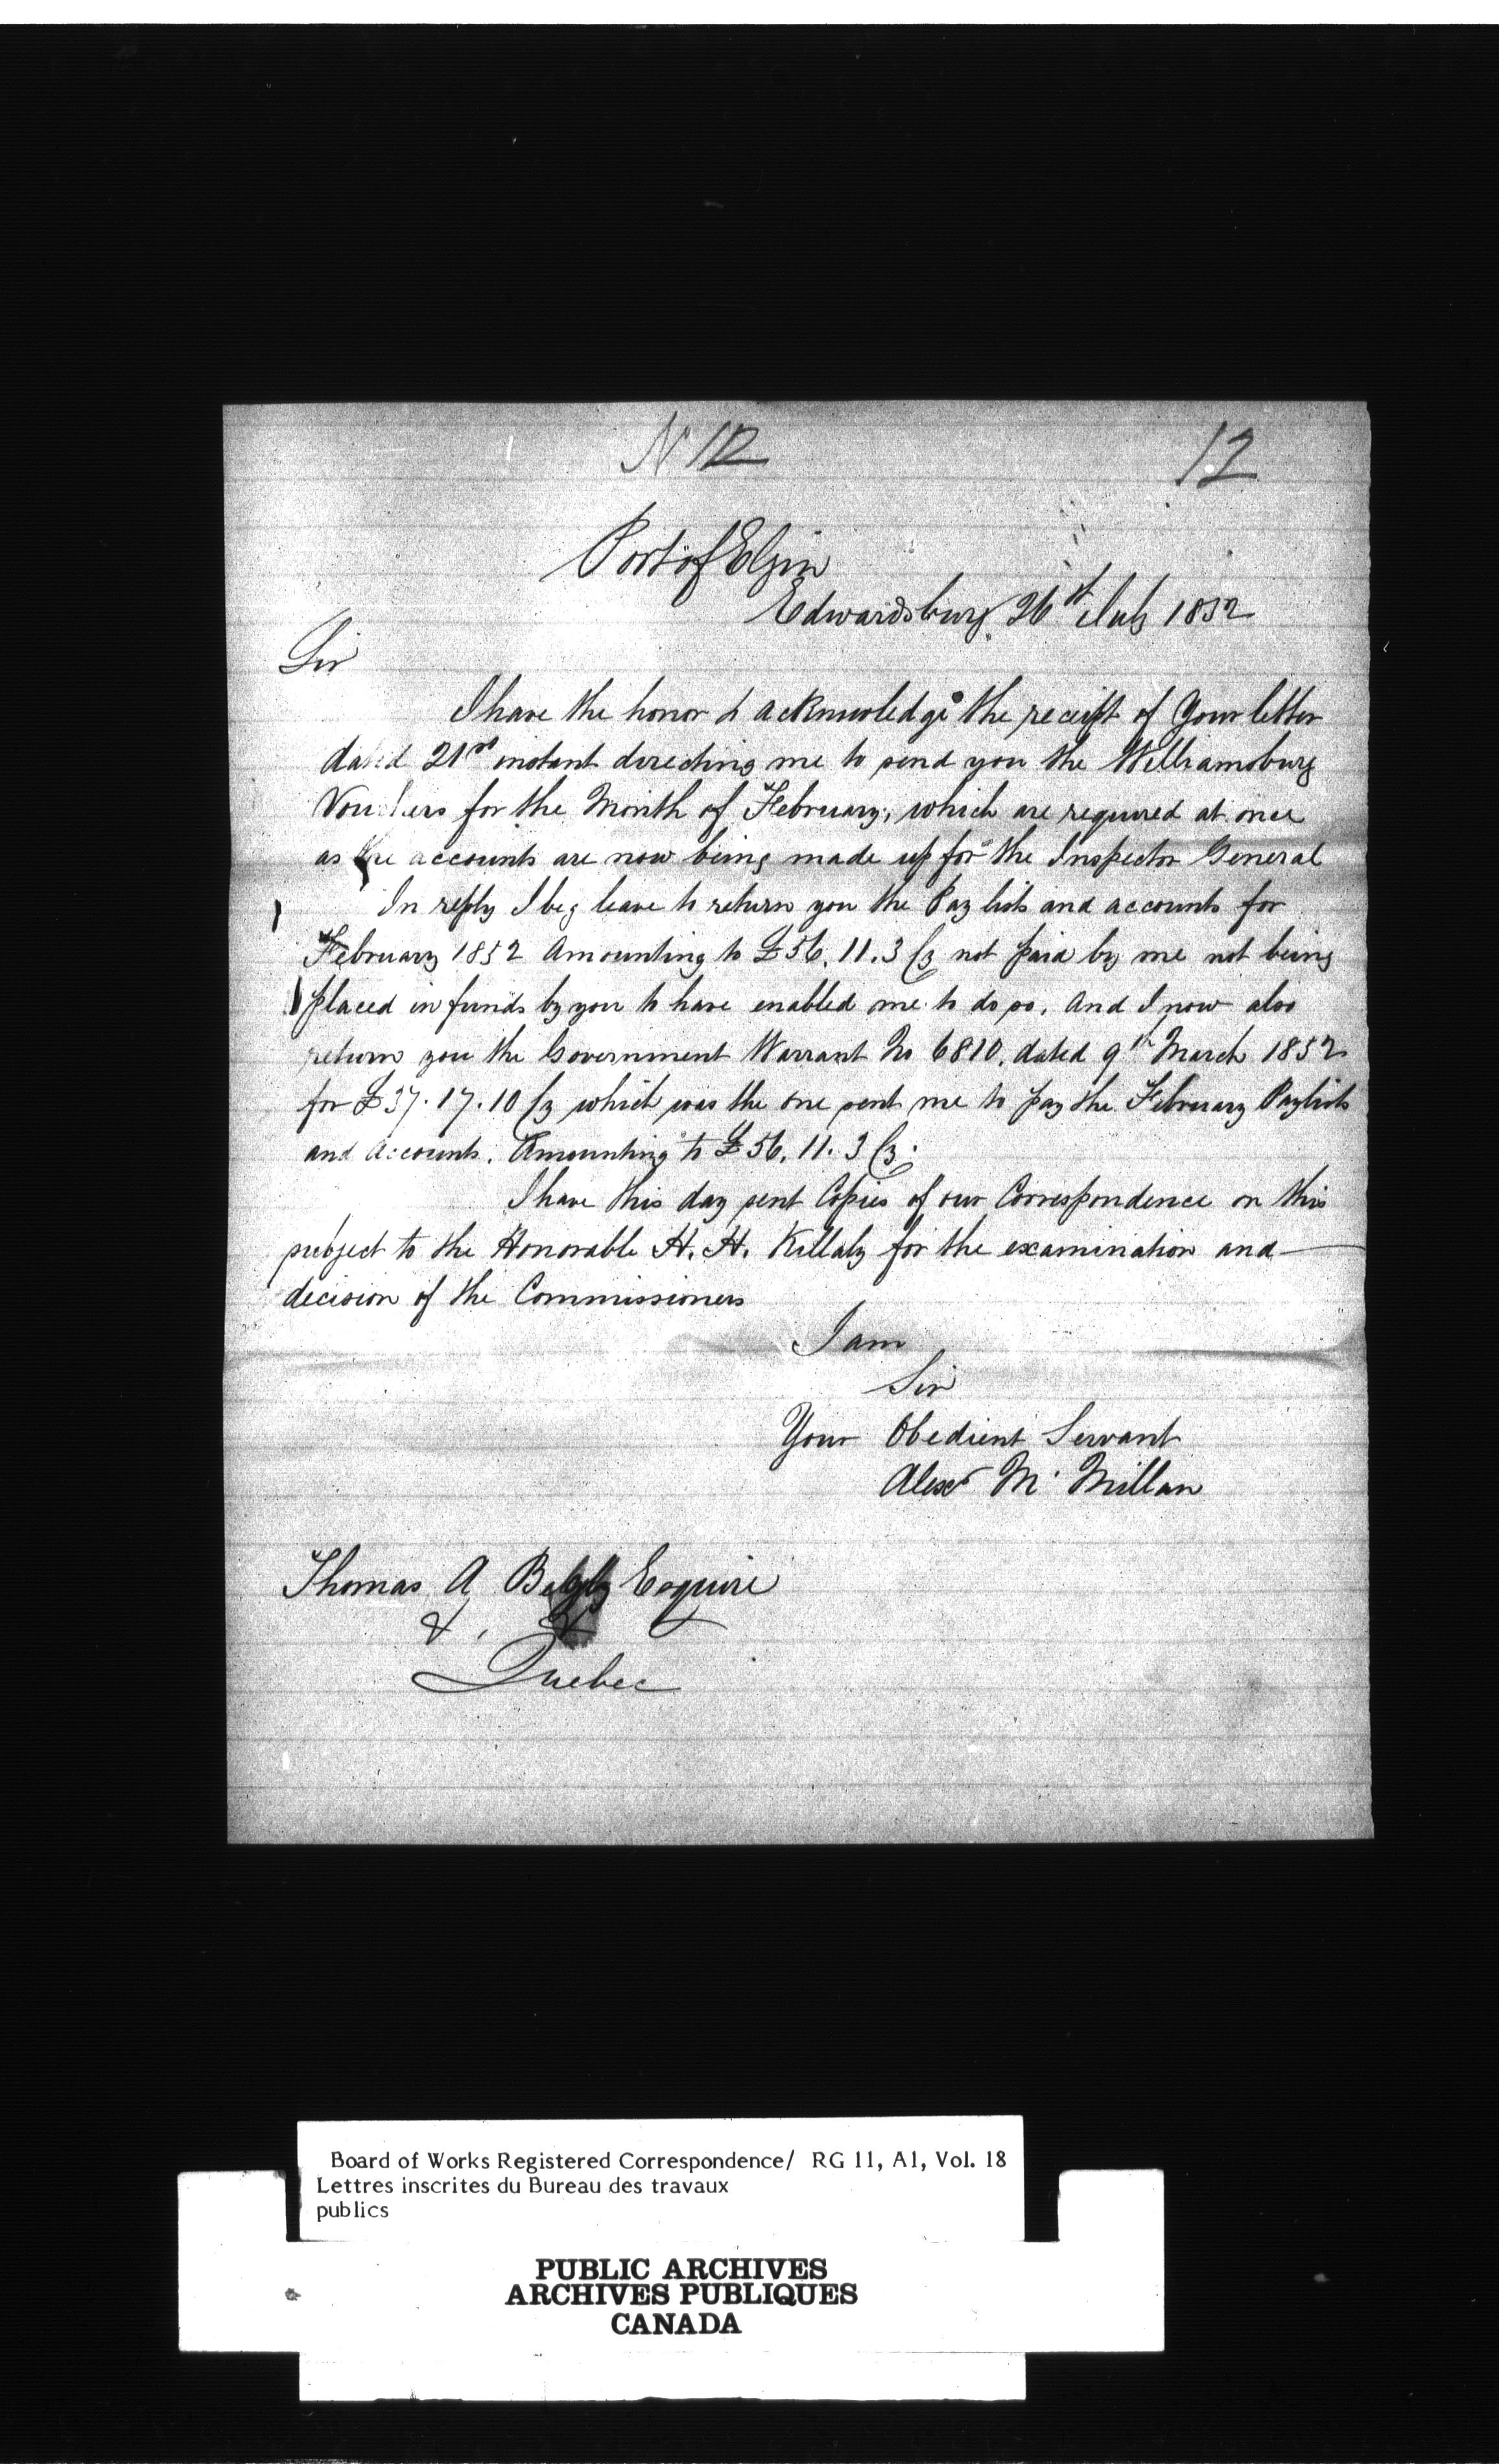 N 12
12
Port of Elgin
Edwardsburg 26th July 1852
Sir
I have the honor to acknowledge the receipt of Your letter
dated 21st instant directing me to send you the Williamsburg
Vouchers for the Month of February, which are required at once
as the accounts are now being made up for the Inspector General
In reply I beg leave to return you the Pay lists and accounts for
February 1852 Amounting to £56.11.3 Cy not paid by me not being
placed in funds by you to have enabled me to do so, And I now also
return you the Government Warrant No 6810. dated 9th March 1852
for £37.17.10 Cy which was the one sent me to pay the February Paylists
and Accounts. Amounting to £56.11.3 Cy.
I have this day sent Copies of our Correspondence on this
subject to the Honorable H. H. Killaly for the examination and
decision of the Commissioners
I am
Sir
Your Obedient Servant
Alexr Mc Millan
Thomas A Begly Esquire
&. &
Quebec
Board of Works Registered Correspondence/ RG 11, A1, Vol. 18
Lettres inscrites du Bureau des travaux
publics
PUBLIC ARCHIVES
ARCHIVES PUBLIQUES
CANADA